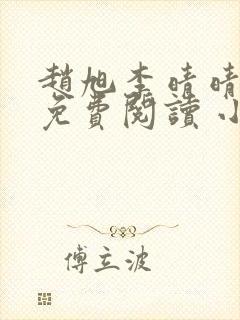 趙旭李晴晴
免費閱讀小
傅立波